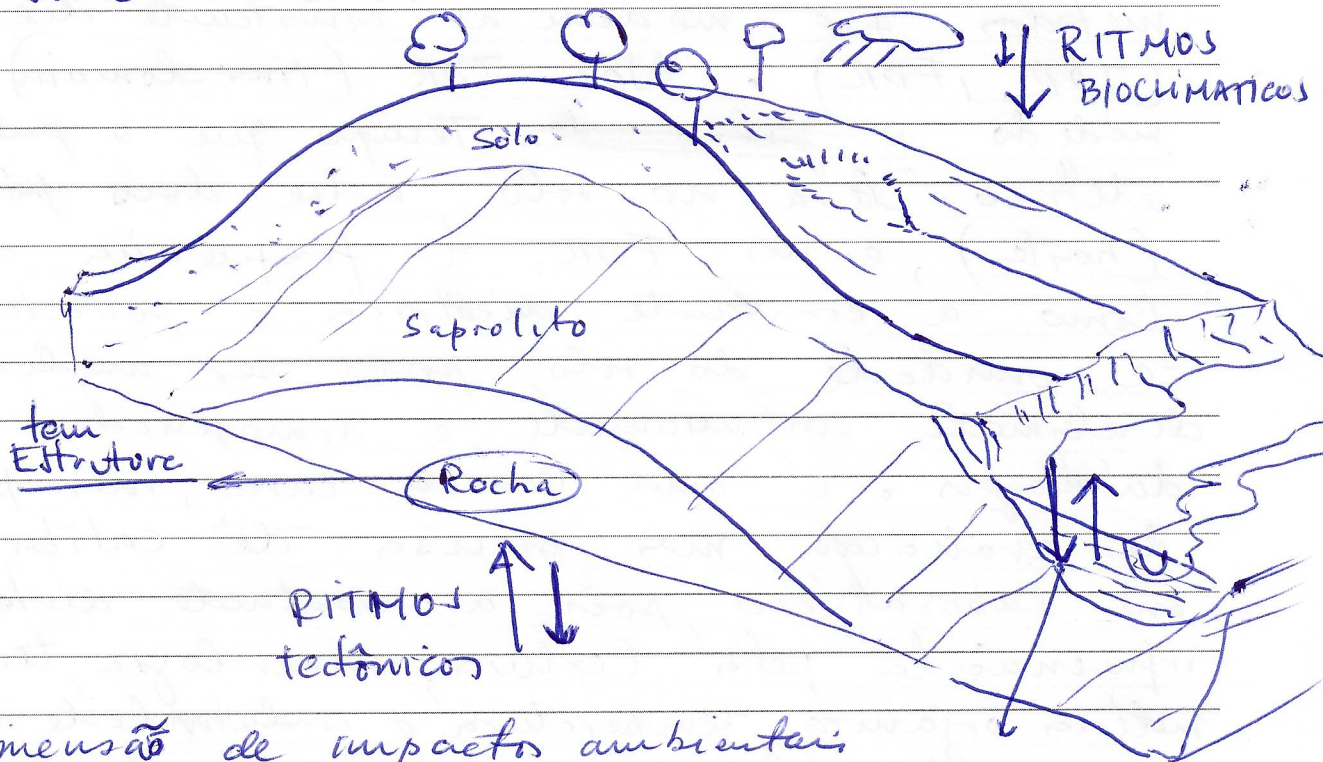 RITMOS
BIOCLIMATICOS
Sólo
Saprolito
tem
Estrutura
Rocha
RITMOS
tectônicos
mensão de impactos ambientais